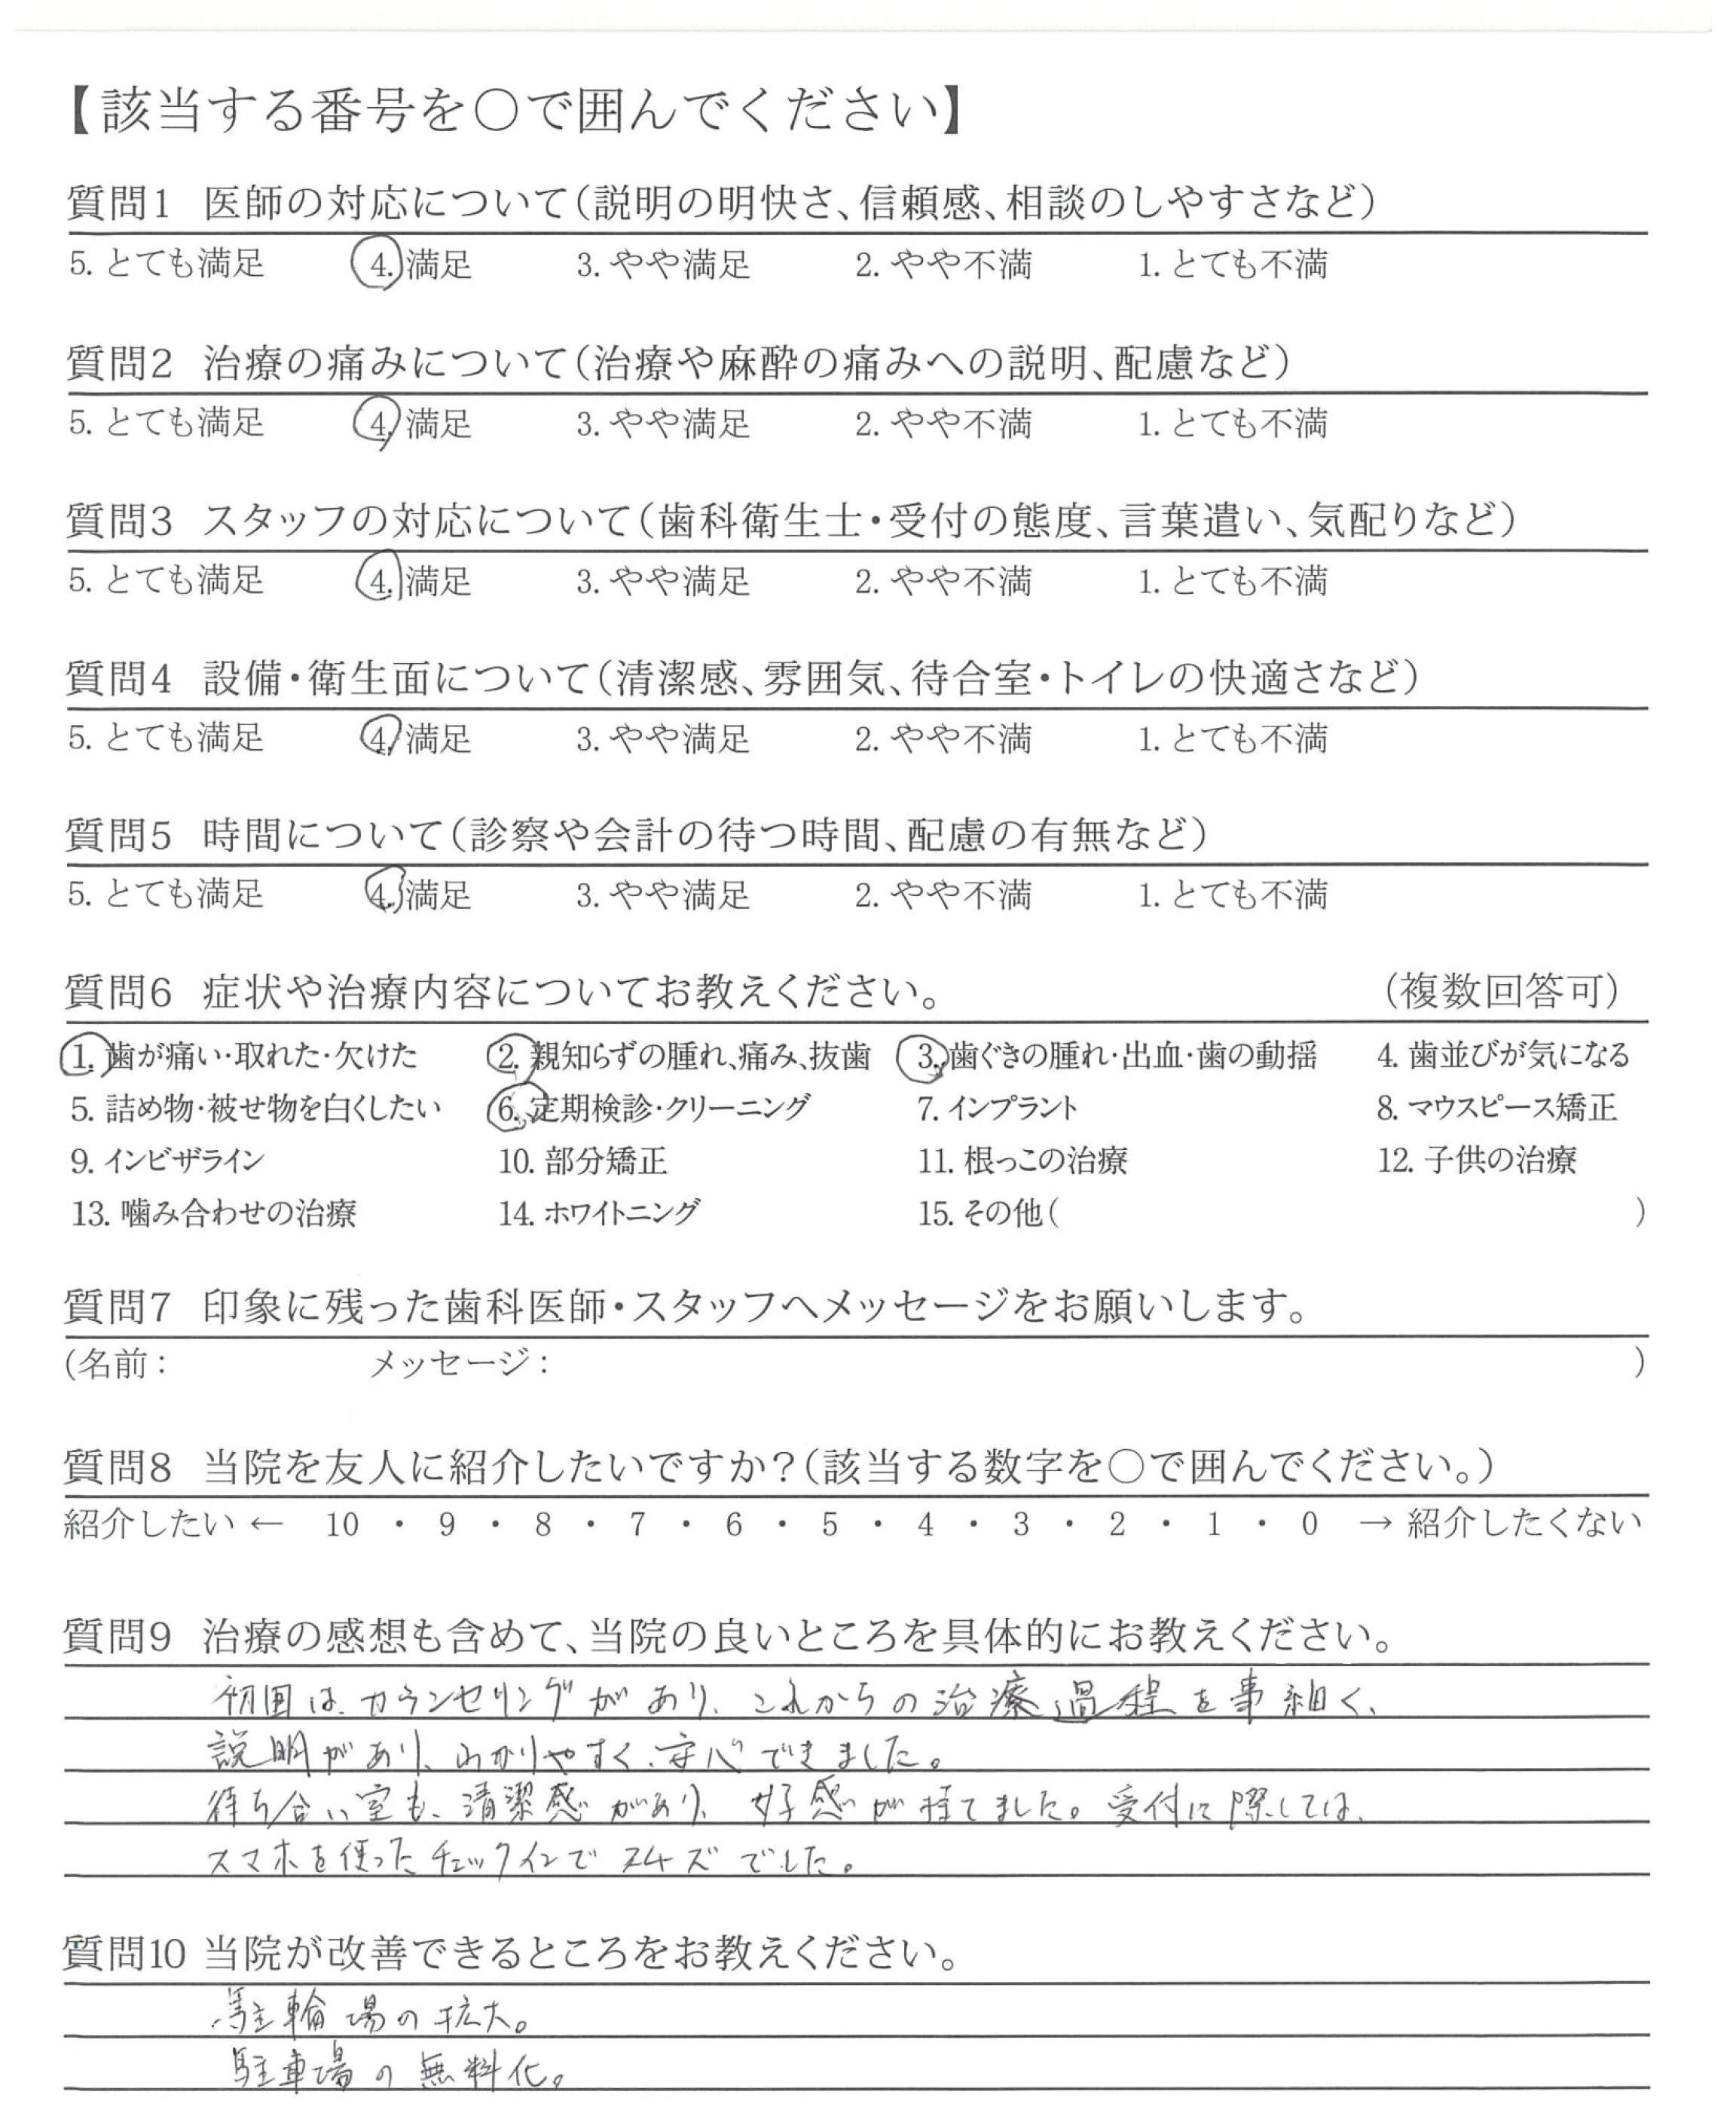 【該当する番号を○で囲んでください】
質問1 医師の対応について(説明の明快さ、信頼感、相談のしやすさなど)
5. とても満足 4. 満足 3. やや満足 2. やや不満 1. とても不満
質問2 治療の痛みについて(治療や麻酔の痛みへの説明、配慮など)
5. とても満足 4. 満足 3. やや満足 2. やや不満 1. とても不満
質問3 スタッフの対応について(歯科衛生士・受付の態度、言葉遣い、気配りなど)
5. とても満足 4. 満足 3. やや満足 2. やや不満 1. とても不満
質問4 設備・衛生面について(清潔感、雰囲気、待合室・トイレの快適さなど)
5. とても満足 4. 満足 3. やや満足 2. やや不満 1. とても不満
質問5 時間について(診察や会計の待つ時間、配慮の有無など)
5. とても満足 4. 満足 3. やや満足 2. やや不満 1. とても不満
質問6 症状や治療内容についてお教えください。 (複数回答可)
1. 歯が痛い・取れた・欠けた 2. 親知らずの腫れ、痛み、抜歯 3. 歯ぐきの腫れ・出血・歯の動揺 4. 歯並びが気になる
5. 詰め物・被せ物を白くしたい 6. 定期検診・クリーニング 7. インプラント 8. マウスピース矯正
9. インビザライン 10. 部分矯正 11. 根っこの治療 12. 子供の治療
13. 噛み合わせの治療 14. ホワイトニング 15. その他( )
質問7 印象に残った歯科医師・スタッフへメッセージをお願いします。
(名前: メッセージ: )
質問8 当院を友人に紹介したいですか?(該当する数字を○で囲んでください。)
紹介したい ← 10 ・ 9 ・ 8 ・ 7 ・ 6 ・ 5 ・ 4 ・ 3 ・ 2 ・ 1 ・ 0 → 紹介したくない
質問9 治療の感想も含めて、当院の良いところを具体的にお教えください。
初回は、カウンセリングがあり、これからの治療過程を事細く、
説明があり、わかりやすく、安心できました。
待ち合い室も、清潔感があり、好感が持てました。受付に際しては、
スマホを使ったチェックインでスムーズでした。
質問10 当院が改善できるところをお教えください。
駐輪場の拡大。
駐車場の無料化。